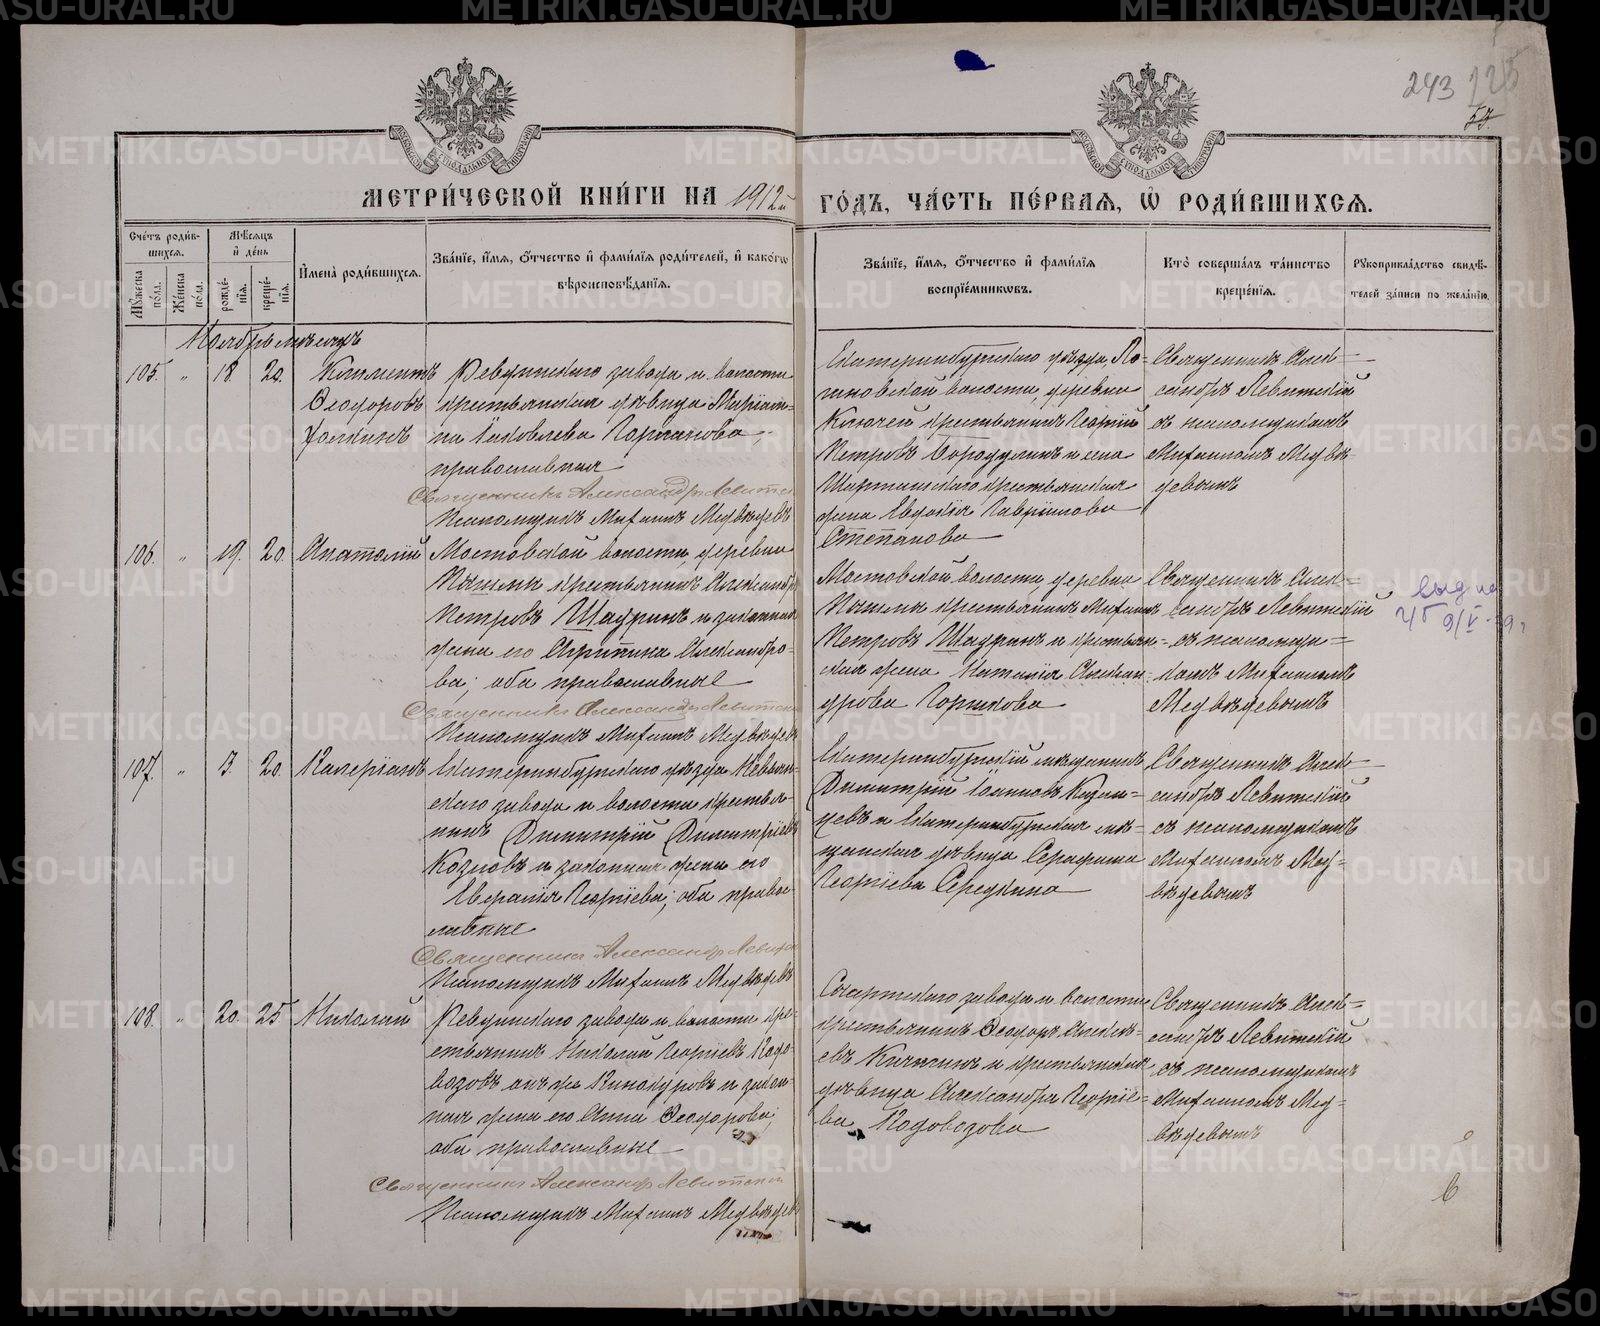 243 125
57.
МЕТРИ́ЧЕСКОЙ КНИ́ГИ НА 1912й ГО́ДЪ, ЧА́СТЬ ПЕ́РВАЯ, Ѡ҆ РОДИ́ВШИХСЯ.
Сче́тъ роди́вшихся.
Мꙋ́жеска по́ла.
Же́нска по́ла.
Мѣ́сяцъ и҆ де́нь
рожде́нїя.
креще́нїя.
И҆мена̀ роди́вшихся.
Зва́нїе, и҆́мя, ѻ҆́тчество и҆ фами́лїя роди́телей, и҆ како́гѡ
вѣроисповѣ́данїя.
Зва́нїе, и҆́мя, ѻ҆́тчество и҆ фами́лїя
воспрїе́мникѡвъ.
Кто̀ соверша́лъ та́инство
креще́нїя.
Рꙋкоприкла́дство свидѣ́-
телей за́писи по жела́нїю.
Ноябрь мѣсяцъ
105. " 18. 20. Климентъ
Ѳеодоровъ
Ревдинскаго завода и волости
крестьянская дѣвица Маріам-
на Іаковлева Горланова,
православная
Священникъ Александръ Левитск
Псаломщикъ Михаилъ Медвѣдевъ
Екатеринбургскаго уѣзда, Ло-
гиновской волости, деревни
Ключей крестьянинъ Георгій
Петровъ Бородулинъ и села
Шарташскаго крестьянская
жена Евдокія Гавриилова
Степанова
Священникъ Алек-
сандръ Левитскій
съ псаломщикомъ
Михаиломъ Медвѣ-
девымъ
106. " 19. 20. Анатолій
Мостовской волости, деревни
Пышмы крестьянинъ Александръ
Петровъ Шадринъ и законная
жена его Агрипина Александро-
ва; оба православные
Священникъ Александръ Левитск
Псаломщикъ Михаилъ Медвѣдевъ
Мостовской волости, деревни
Пышмы крестьянинъ Михаилъ
Петровъ Шадринъ и крестьян-
ская жена Наталія Алексан-
дрова Горшкова
Священникъ Алек-
сандръ Левитскій
съ псаломщи-
комъ Михаиломъ
Медвѣдевымъ
107. " 3. 20. Валеріанъ
Екатеринбургскаго уѣзда Невьян-
скаго завода и волости крестья-
нинъ Димитрій Димитріевъ
Козловъ и законная жена его
Евгратія Георгіева; оба право-
славные
Священникъ Александръ Левитск
Псаломщикъ Михаилъ Медвѣдевъ
Екатеринбургскій мѣщанинъ
Димитрій Іоанновъ Казан-
цевъ и Екатеринбургская мѣ-
щанская дѣвица Серафима
Георгіева Середкина
Священникъ Алек-
сандръ Левитскій
съ псаломщикомъ
Михаиломъ Мед-
вѣдевымъ
108. " 20. 25. Николай
Ревдинскаго завода и волости кре-
стьянинъ Николай Георгіевъ Кадо-
возовъ онъ же Винокуровъ и закон-
ная жена его Анна Ѳеодорова;
оба православные
Священникъ Александръ Левитский
Псаломщикъ Михаилъ Медвѣдевъ
Сысертскаго завода и волости
крестьянинъ Ѳеодоръ Алексѣ-
евъ и крестьянская
дѣвица Александра Георгіе-
ва Кадовозова
Священникъ Алек-
сандръ Левитскій
съ псаломщикомъ
Михаиломъ Мед-
вѣдевымъ
METRIKI.GASO-URAL.RU